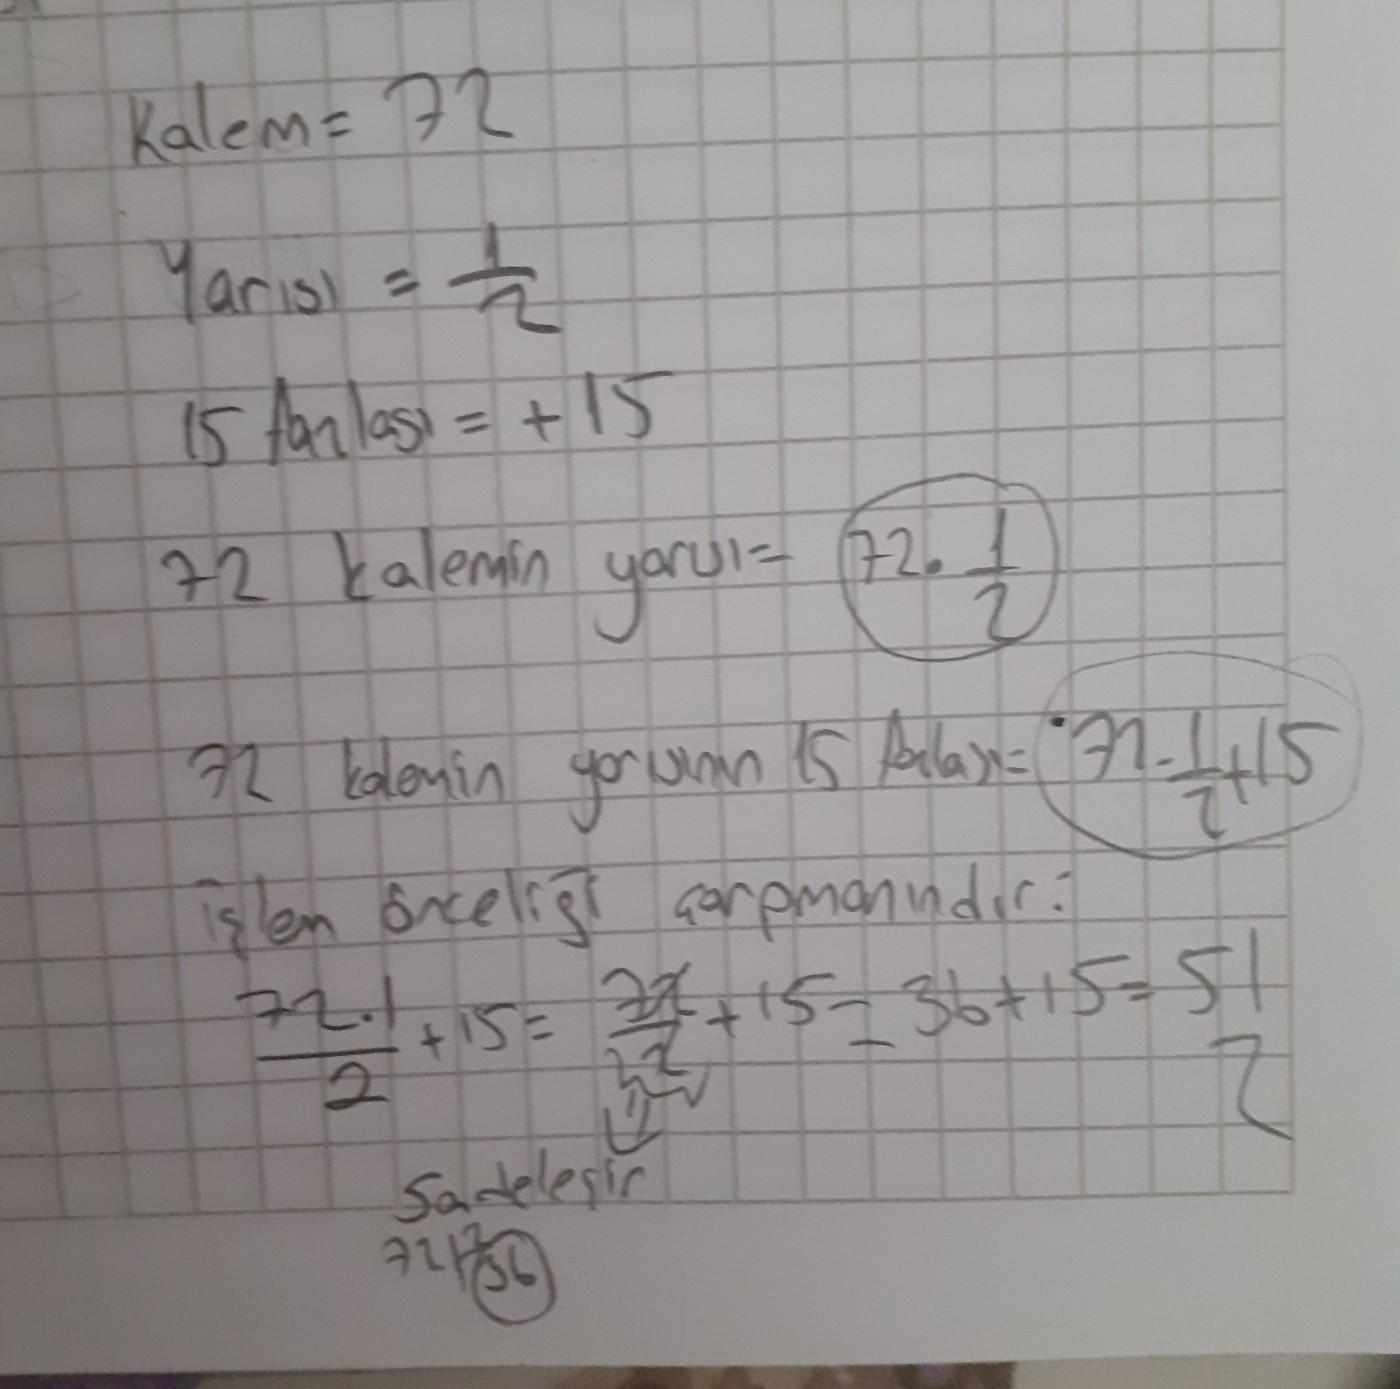 Kalem = 72
Yarısı = 1/2
15 fazlası = +15
72 kalemin yarısı = 72 . 1/2
72 kalemin yarısının 15 fazlası = 72 . 1/2 + 15
işlem önceliği çarpmanındır:
72.1/2 + 15 = 72/2 + 15 = 36 + 15 = 51
Sadeleşir
72 | 2
36